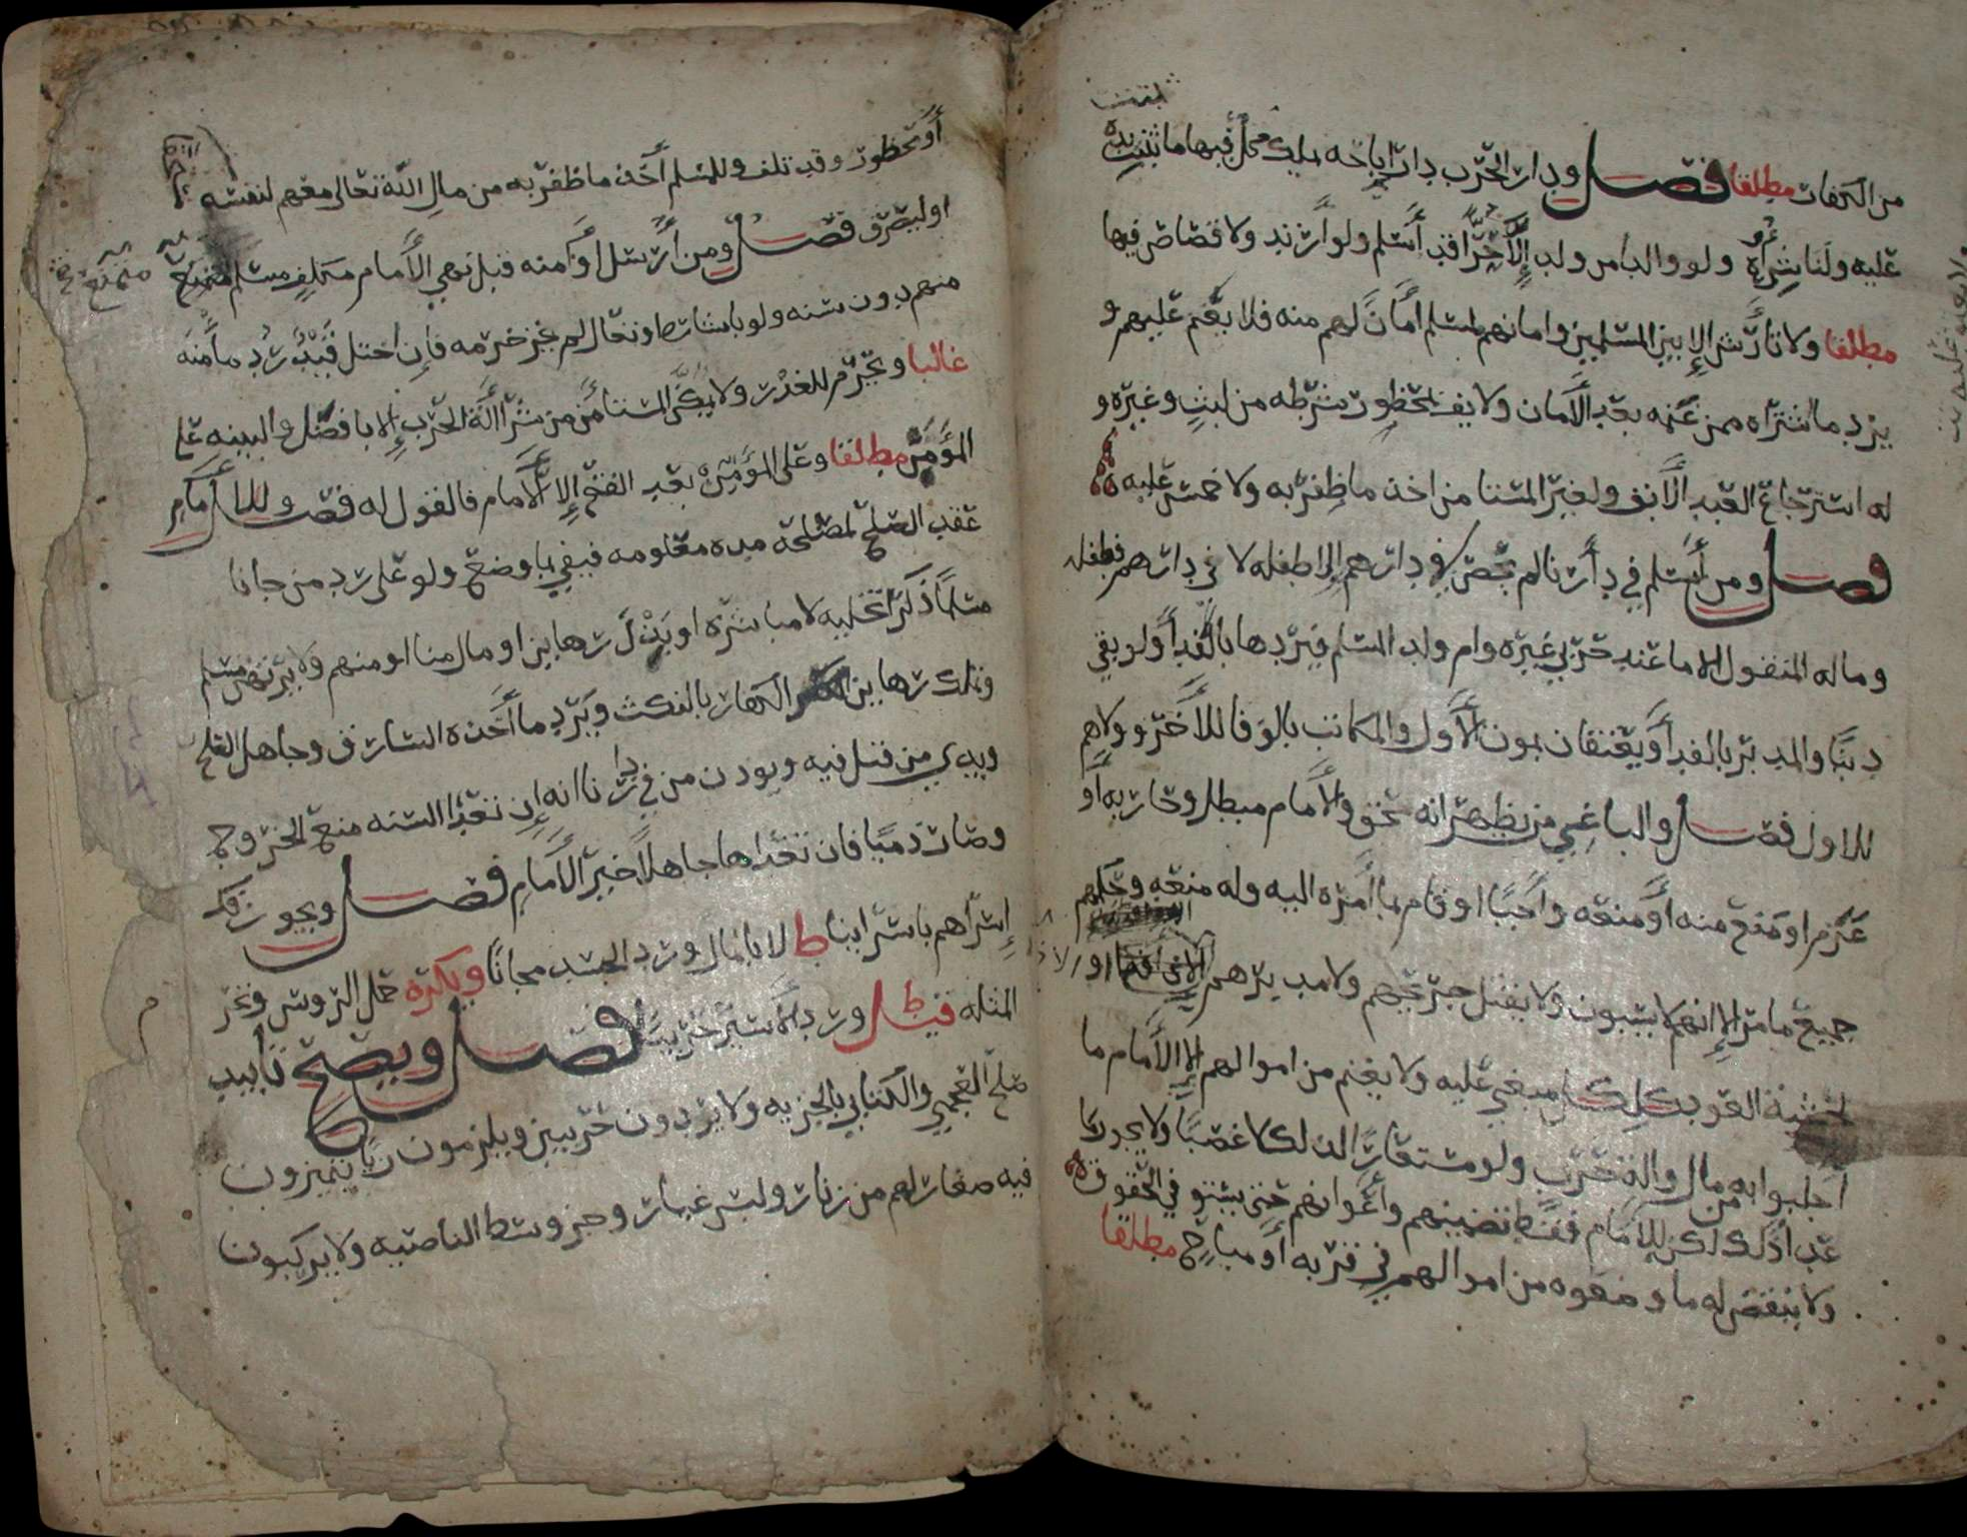 من الكفار مطلقا فصل ودار الحرب دار اباحه يملك كل فيها ما ثبتت يده
عليه ولنا شراه ولو والدا من ولد إلا حرا قد أسلم ولو ارتد ولا قصاص فيها
مطلقا ولا تأرش إلا بين المسلمين وامانهم لمسلم أمان لهم منه فلا يغنم عليهم و
يرد ما اشتراه ممن غنمه بعد الأمان ولا يف بمحظور شرطه من لبث وغيره و
له استرجاع العبد الآبق ولغير المستامن اخذ ما ظفر به ولا خمس عليه
فصل ومن أسلم في دارنا لم يحصن في دارهم إلا طفله لا في دارهم فطفله
وماله المنقول إلا ما عند حربي غيره وام ولد المسلم فيردها بالفدا ولو بقي
دينا والمدبر بالفدا ويعتقان بموت الأول والمكاتب بالوفا للآخر وولاهم
للاول فصل والباغي من يظهر انه محق والأمام مبطل وحاربه أو
عزم او منع منه أو منعه واجبا او قام بما أمره اليه وله منعه وحكمهم
جميع ما مر إلا انهم لا يسبون ولا يقتل جريحهم ولا مدبرهم إلا ذا فئة او
لخشية العود ككل مبغي عليه ولا يغنم من اموالهم إلا الأمام ما
أجلبوا به من مال وآلة حرب ولو مستعارا لذلك لا غصبا ولا يجوز ما
عدا ذلك لكن للإمام فقط تضمينهم وأعوانهم حتى يستوفي الحقوق
ولا ينقض له ما وضعوه من اموالهم في قربه أو مباح مطلقا
أو محظور وقد تلف وللمسلم أخذ ما ظفر به من مال الله تعالى معهم لنفسه
او ليصرف فصل ومن أرسل او أمنه قبل نهي الأمام مكلف مسلم متمنع
منهم دون سنه ولو باشارة او تعال لم يجز خرمه فإن اختل قيد رد مأمنه
غالبا ويحرم للغدر ولا يمكن المستامن من شرا آلة الحرب إلا بافضل والبينه على
المؤمن مطلقا وعلى المؤمن بعد الفتح إلا الأمام فالقول له فصل وللإمام
عقد الصلح لمصلحة مدة معلومه فيفي بما وضع ولو على رد من جانا
مسلما ذكرا تخليه لا مباشرة او بذل رهاين او مال منا او منهم ولا يرتهن مسلم
وتملك رهاين الكفار بالنكث ويرد ما أخذه السارق وجاهل الصلح
ويدي من قتل فيه ويؤذن من في دارنا انه إن تعدا السنه منع الخروج
وصار ذميا فان تعداها جاهلا خير الأمام فصل ويجوز فك
إسراهم باسرانا ط لا بالمال ورد الجسد مجانا ويكره حمل الرؤس وتحر
المثله قيل ورد الأسير حربيا فصل ويصح تأبيد
صلح العجمي والكتابي بالجزيه ولا يردون حربيين ويلزمون زيا يتميزون
فيه صغار لهم من زنار ولبس غيار وجز وسط الناصيه ولا يركبون